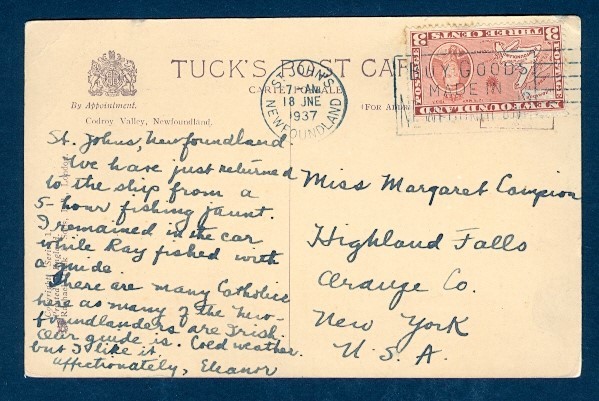 TUCK'S POST CARD
CARTE POSTALE
By Appointment.
(FOR
Codroy Valley, Newfoundland.
ST. JOHN'S
7 AM
18 JNE
1937
NEWFOUNDLAND
BUY GOODS
MADE IN
NEWFOUNDLAND
POSTAGE
THREE CENTS
3
3
St. Johns, Newfoundland.
We have just returned
to the ship from a
5-hour fishing jaunt.
I remained in the car
while Ray fished with
a guide.
There are many Catholics
here as many of the New-
foundlanders are Irish.
Our guide is. Cold weather.
but I like it.
Affectionately, Eleanor
Miss Margaret Campion
Highland Falls
Orange Co.
New York
U.S.A.